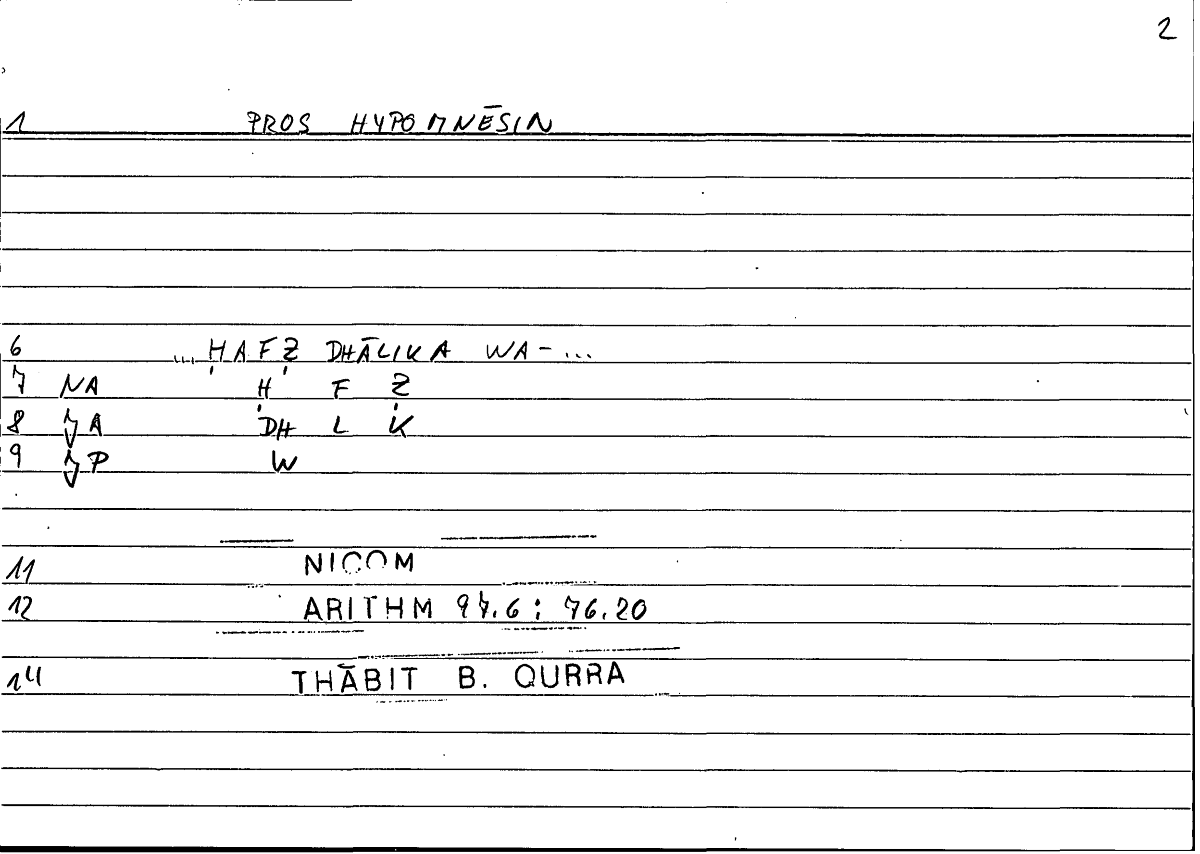 2
1 PROS HYPOMNĒSIN
6 ... ḤAFẒ DHĀLIKA WA-...
7 NA Ḥ F Ẓ
8 A DH L K
9 P W
11 NICOM
12 ARITHM 97.6 : 76.20
14 THĀBIT B. QURRA